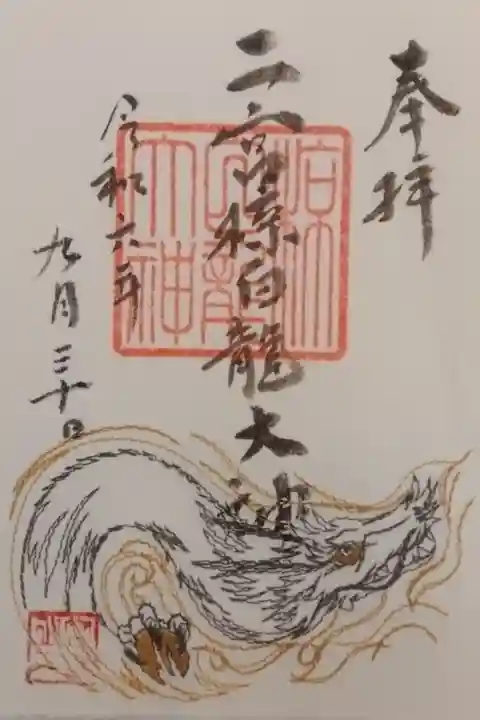 奉拝
二宮白龍大神
令和六年
九月三十日
白龍
大神